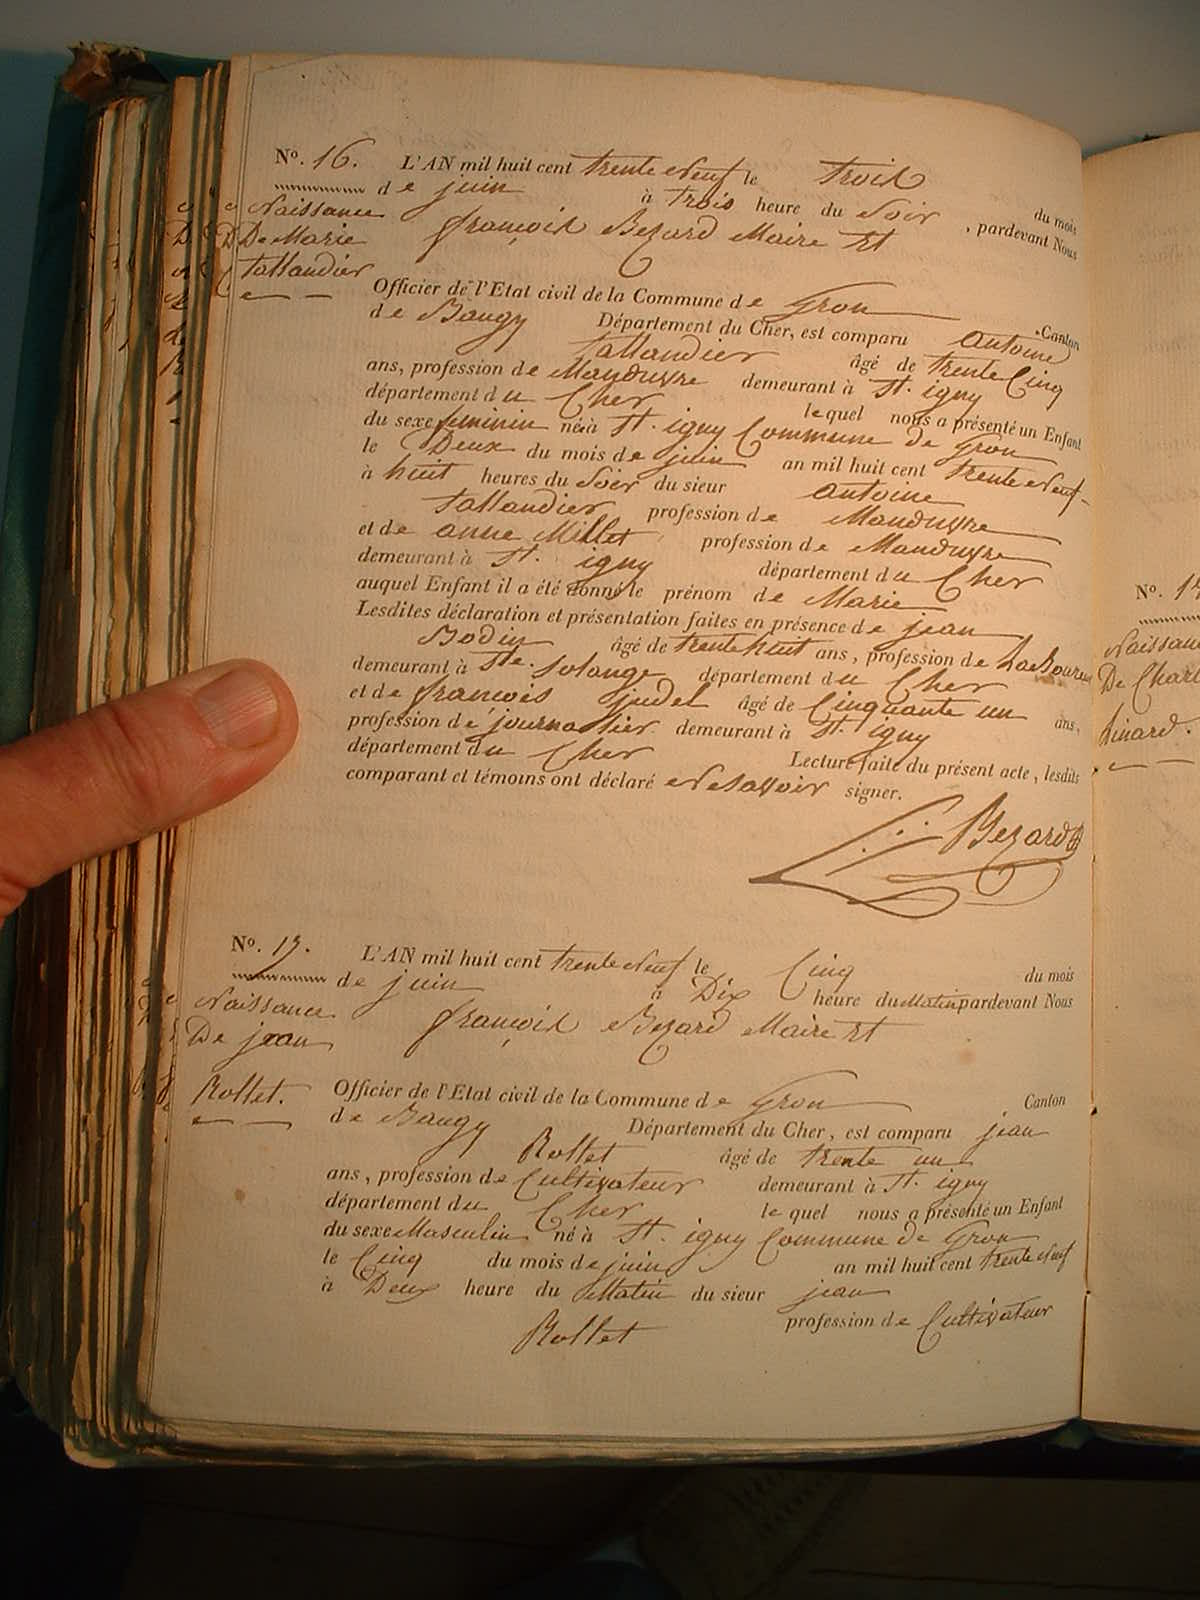 No. 16. L'AN mil huit cent trente Neuf le trois du mois
de juin à trois heure du Soir, pardevant Nous
Naissance
De Marie
tallandier
françois Bezard Maire Et
Officier de l'Etat civil de la Commune de Gron Canton
de Baugy Département du Cher, est comparu antoine
tallandier âgé de trente Cinq
ans, profession de Manœuvre demeurant à St. igny
département du Cher lequel nous a présenté un Enfant
du sexe feminin né à St. igny Commune de Gron
le Deux du mois de juin an mil huit cent trente Neuf
à huit heures du Soir du sieur antoine
tallandier profession de Manœuvre
et de anne Millet profession de Manœuvre
demeurant à St. igny département du Cher
auquel Enfant il a été donné le prénom de Marie
Lesdites déclaration et présentation faites en présence de jean
Bodin âgé de trente huit ans, profession de Laboureur
demeurant à Ste. Solange département du Cher
et de francois judel âgé de Cinquante un ans,
profession de journalier demeurant à St. igny
département du Cher Lecture faite du présent acte, lesdits
comparant et témoins ont déclaré Ne Savoir signer.
Bezard
No. 17. L'AN mil huit cent trente Neuf le Cinq du mois
de juin à Dix heure du Matin pardevant Nous
Naissance
De jean
Rollet.
françois Bezard Maire Et
Officier de l'Etat civil de la Commune de Gron Canton
de Baugy Département du Cher, est comparu jean
Rollet âgé de trente un
ans, profession de Cultivateur demeurant à St. igny
département du Cher lequel nous a présenté un Enfant
du sexe Masculin né à St. igny Commune de Gron
le Cinq du mois de juin an mil huit cent trente Neuf
à Deux heure du Matin du sieur jean
Rollet profession de Cultivateur
No.
De